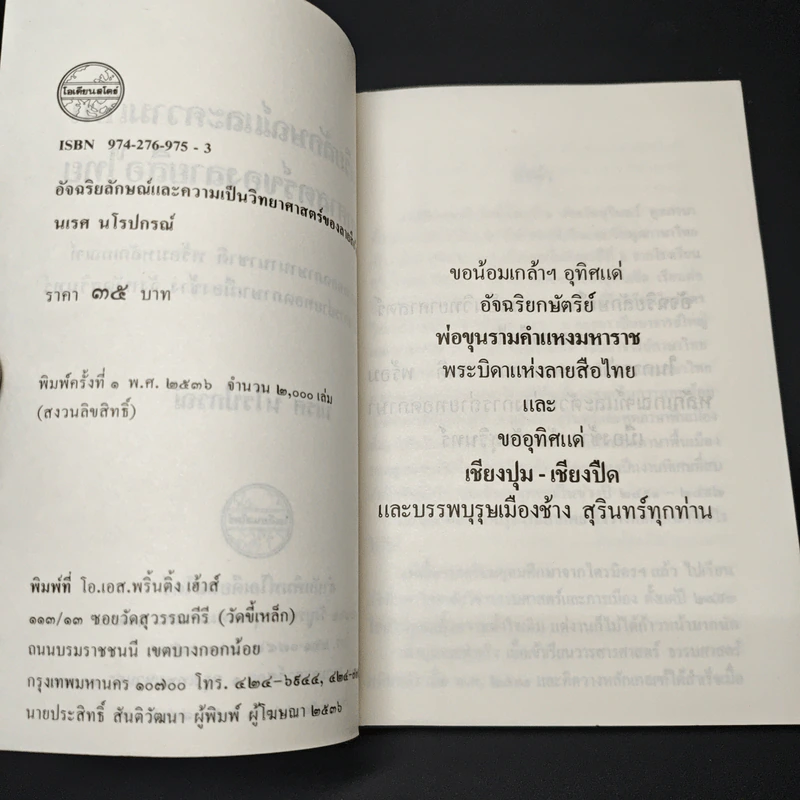 โอเดียนสโตร์
ISBN 974-276-975 - 3
อัจฉริยลักษณ์และความเป็นวิทยาศาสตร์ของลายสือ
นเรศ นโรปกรณ์
ราคา ๓๕ บาท
พิมพ์ครั้งที่ ๑ พ.ศ. ๒๕๓๖ จำนวน ๒,๐๐๐ เล่ม
(สงวนลิขสิทธิ์)
พิมพ์ที่ โอ.เอส.พริ้นติ้ง เฮ้าส์
๑๑๓/๑๓ ซอยวัดสุวรรณคีรี (วัดขี้เหล็ก)
ถนนบรมราชชนนี เขตบางกอกน้อย
กรุงเทพมหานคร ๑๐๗๐๐ โทร. ๔๒๔-๖๙๔๔,
นายประสิทธิ์ สันติวัฒนา ผู้พิมพ์ ผู้โฆษณา ๒๕๓๖
ขอน้อมเกล้าฯ อุทิศแด่
อัจฉริยกษัตริย์
พ่อขุนรามคำแหงมหาราช
พระบิดาแห่งลายสือไทย
และ
ขออุทิศแด่
เชียงปุม - เชียงปืด
และบรรพบุรุษเมืองช้าง สุรินทร์ทุกท่าน